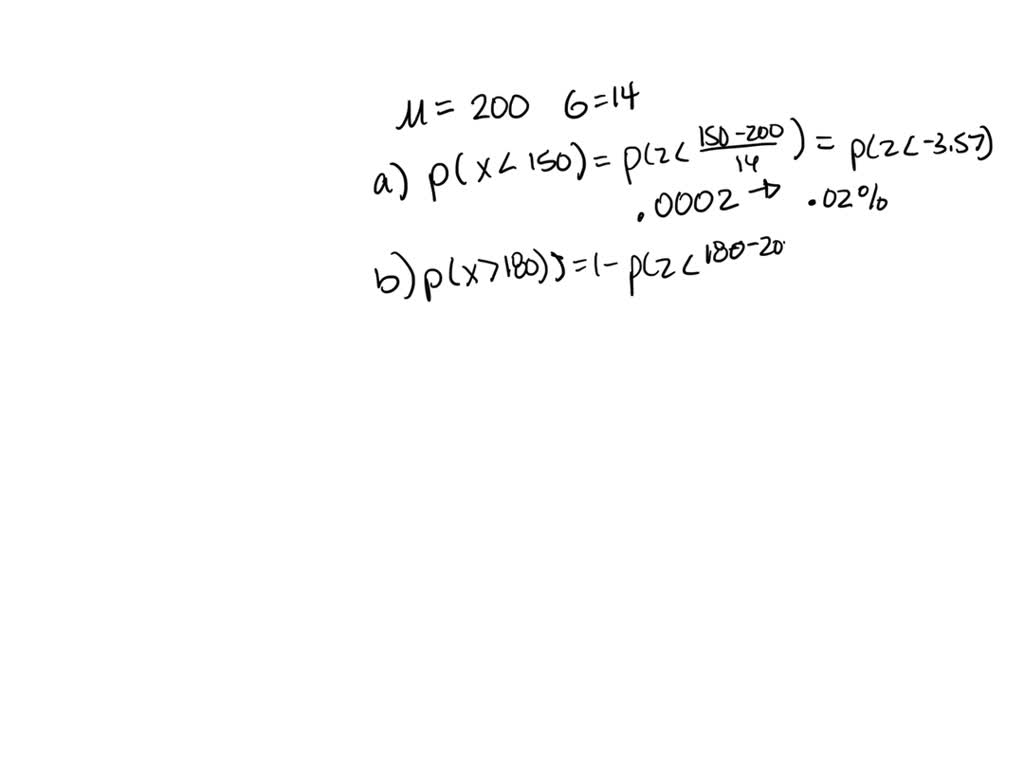 μ = 200 σ = 14
a) p(x < 150) = p(z < (150-200)/14) = p(z < -3.57)
.0002 → .02%
b) p(x > 180)) = 1 - p(z < 180-20